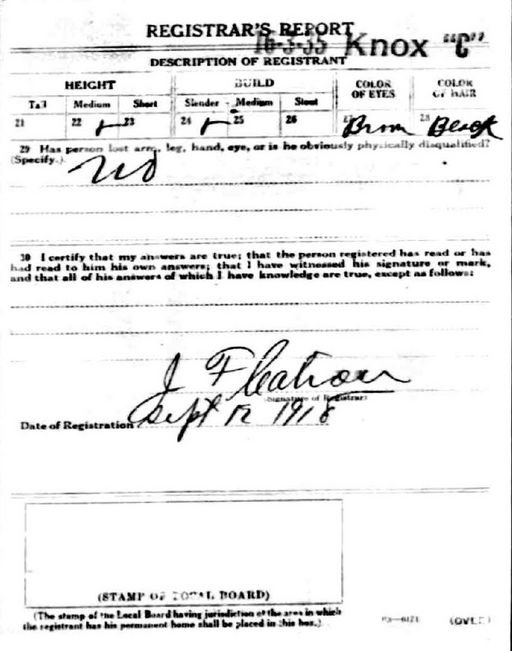 REGISTRAR'S REPORT
16-3-35 Knox "C"
DESCRIPTION OF REGISTRANT
HEIGHT BUILD COLOR OF EYES COLOR OF HAIR
Tall Medium Short Slender Medium Stout
21 22 23 24 25 26 27 Brown 28 Black
29 Has person lost arm, leg, hand, eye, or is he obviously physically disqualified?
(Specify.) No
30 I certify that my answers are true; that the person registered has read or has
had read to him his own answers; that I have witnessed his signature or mark,
and that all of his answers of which I have knowledge are true, except as follows:
J
(Signature of Registrar)
Date of Registration Sept 12 1918
(STAMP OF LOCAL BOARD)
(The stamp of the Local Board having jurisdiction of the area in which
the registrant has his permanent home shall be placed in this box.)
(OVER)